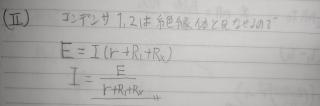 (Ⅱ) コンデンサ 1, 2 は 絶縁体と見なせるので
E = I(r+R₁+Rx)
I = E / (r+R₁+Rx) 〃